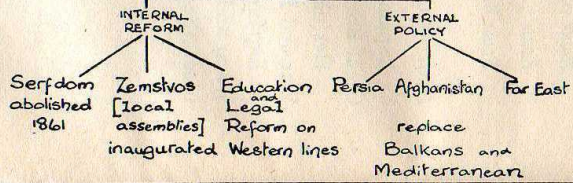 INTERNAL
REFORM
EXTERNAL
POLICY
Serfdom
abolished
1861
Zemstvos
[local
assemblies]
inaugurated
Education
and
Legal
Reform on
Western lines
Persia Afghanistan Far East
replace
Balkans and
Mediterranean